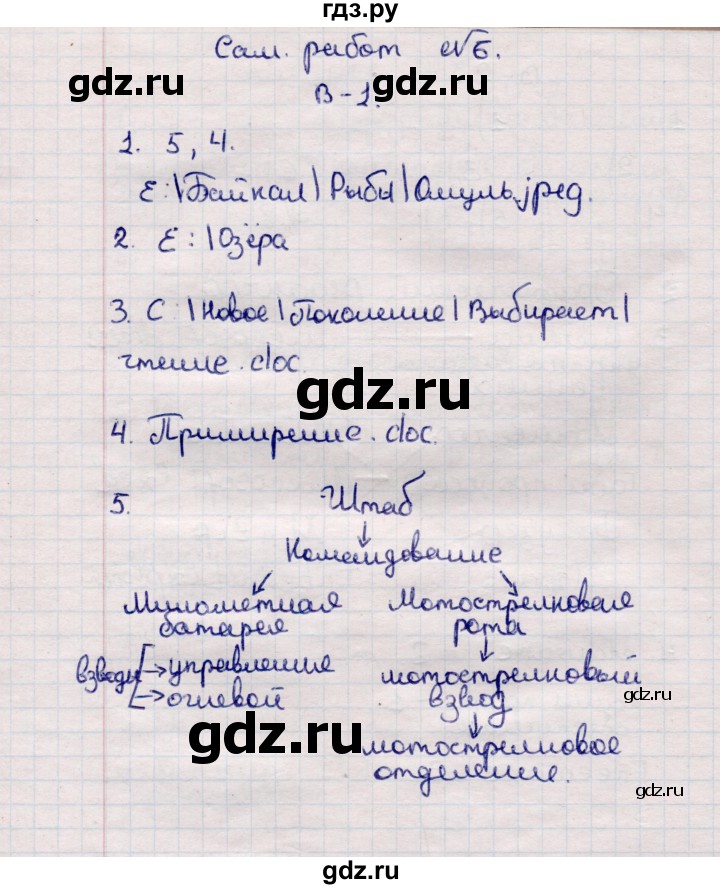 гдз.ру
Сам. работ №6.
gdz.ru gdz.ru
В-1.
1. 5, 4.
E:\Байкал\Рыбы\Омуль.jpeg.
2. E:\Озёра
3. C:\Новое\Поколение\Выбирает\
чтение.doc.
gdz.ru
4. Примирение.doc.
5. Штаб
Командование
Миномётная Мотострелковая
батарея рота
взводы → управление мотострелковый
→ огневой взвод
gdz.ru
gdz.ru
мотострелковое
отделение.
gdz.ru
gdz.ru